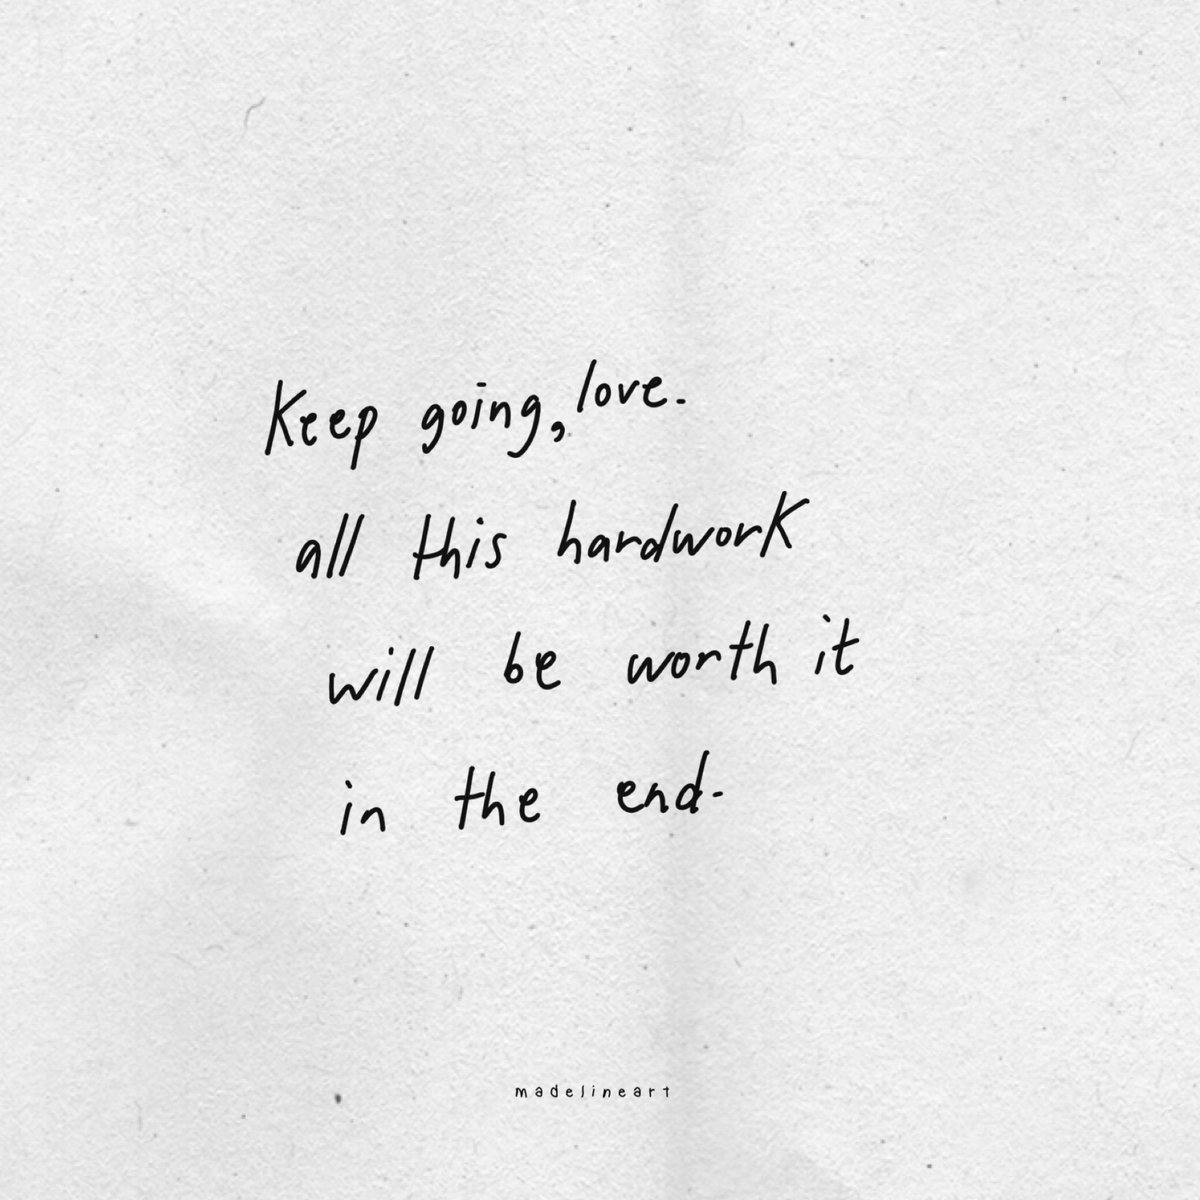 Keep going, love.
all this hardwork
will be worth it
in the end.
madelineart